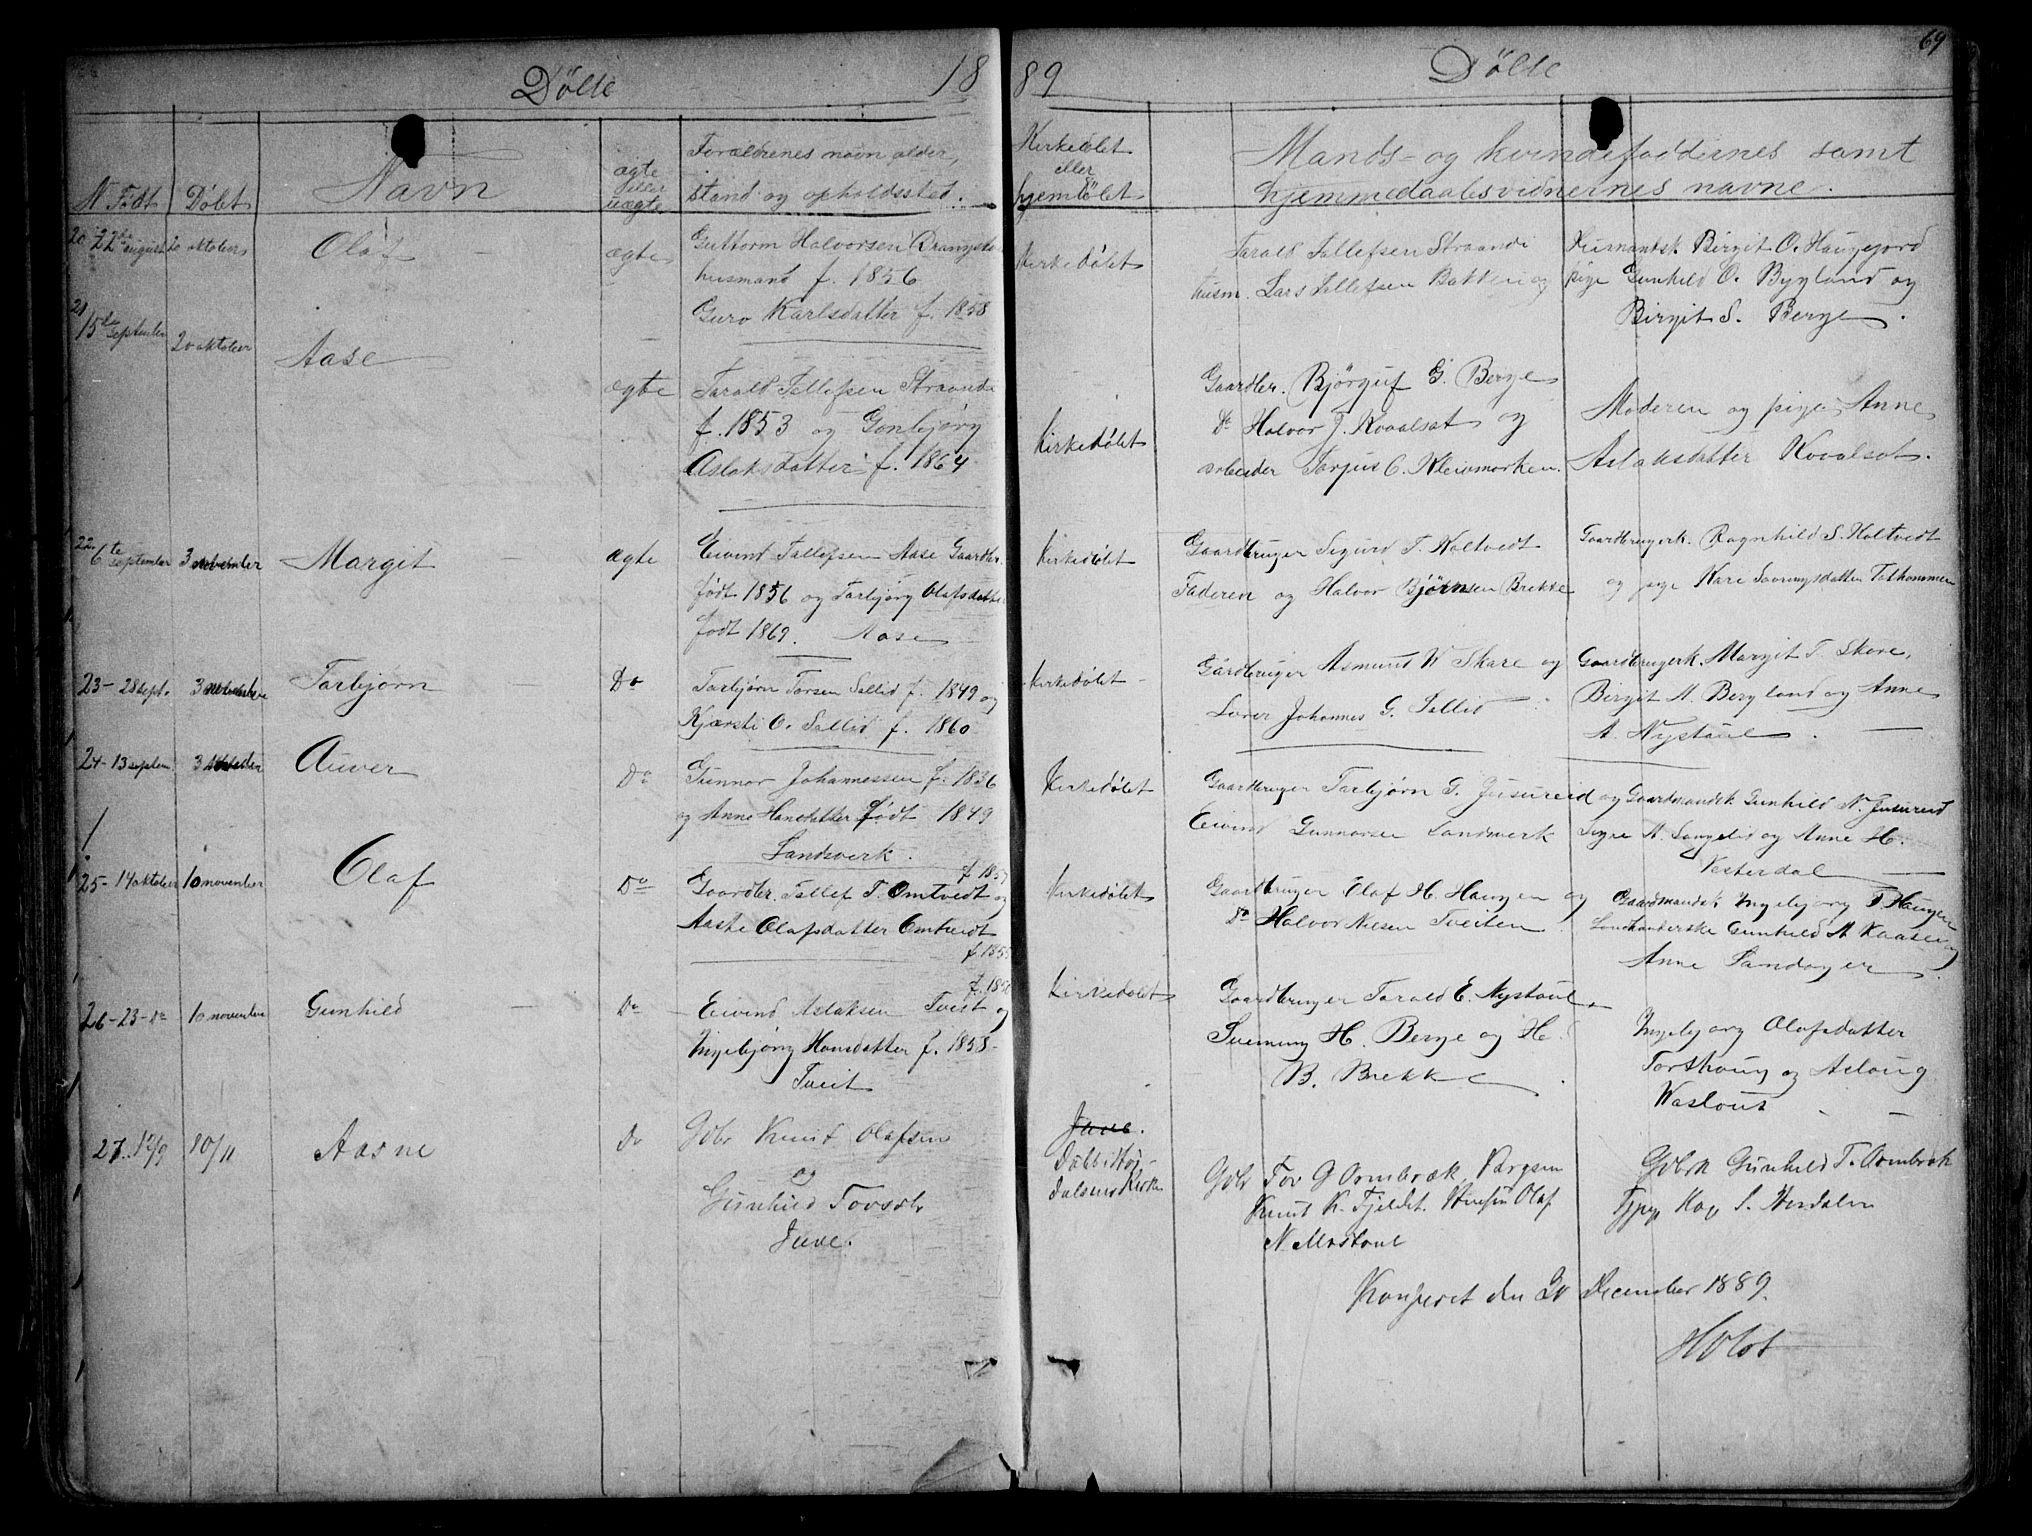 69
Dölte 1889 Dölte
N Födt Dölet Navn
ægte eller uægte
Forældrenes navn alder,
stand og opholdssted.
Kirkedölet
eller
hjemdölet
Mands- og kvindefaddernes samt
hjemmedaabsvidnernes navne.
20 22de august 20 oktober Olaf ægte
Guttorm Halvorsen
husmand f. 1856
Guro Karlsdatter f. 1858
Kirkedölet
Tarald Tallefsen Straandi
husm. Lars Tallefsen Batten og
Husmandsk Birgit O. Haugejord
pige Gunhild O. Bygland og
Birgit S. Berge.
21 15de september 20 oktober Aase ægte
Tarald Tallefsen Straande
f. 1853 og Gonbjörg
Aslaksdatter f. 1864
Kirkedölet
Gaardbr. Björguf G. Berge
Do Halvor J. Kovalsat og
arbeider Tarjus O. Kleivmarken.
Moderen og pige Anne
Aslaksdatter Kovalsat.
22. 6te september 3 november Margit ægte
Eivind Tallefsen Aase Gaardbr.
födt 1856 og Tarbjörg Olafsdatter
födt 1869. Aase
Kirkedölet
Gaardbruger Sigurd T. Holtvedt
Faderen og Halvor Björnsen Brekke
Gaardbrugerk. Ragnhild S. Holtvedt
og pige Kare
23- 28 sept. 3 Tarbjörn Do
Tarbjörn Torsen Sallid f. 1849 og
Kjærsti O. Sallid f. 1860
Kirkedölet
Gårdbruger Asmund W Skare og
Lærer Johannes G. Sallid
Gaardbrugerk. Margit T. Skare,
Birgit A. Bergland og Anne
A. Nystoul.
24- 13 septem. 3 Auver Do
Gunnar Johannessen f. 1836
og Anne Hansdatter födt 1849
Landsverk.
Kirkedölet
Gaardbruger Tarbjörn G. Jusureid og
Eivind Gunnarsen Landsverk
Gaardmandsk Gunhild N. Jusureid
Signe A. Langelid og Anne H.
Vesterdal
25- 14 oktober 10 november Olaf Do
f. 185
Gaardbr. Tallef T. Omtvedt og
Aaste Olafsdatter Omtvedt
f. 1855
Kirkedölet
Gaardbruger Olaf H. Haugen og
Do Halvor Nielsen Tveiten
Gaardmandsk Ingebjörg T Haugen
Gunhild A Kaasen og
Anne Sandager.
26- 23- Do 10 november Gunhild Do
f. 185
Eivind Aslaksen Tveit og
Ingebjörg Hansdatter f. 1858
Tveit
Kirkedölet
Gaardbruger Tarald E. Nystoul,
Sveinung H. Berge og H.
B. Brekke.
Ingebjörg Olafsdatter
Torshaug og Aslaug
Wastout
27. 12/9 10/11 Aasne Do
Gdbr Knud Olafsen
og
Gunhild Tovsdtr
Juve.
Juve.
Döbt i Höi-
dalsmo Kirke
Gdbr Tov G Ormbræk
Knud K. Fjeldet. Olaf
N. Mostoul
Gdbrk Gunhild T. Ormbræk
S. Nordalen
Konferet den 30 December 1889.
Holst